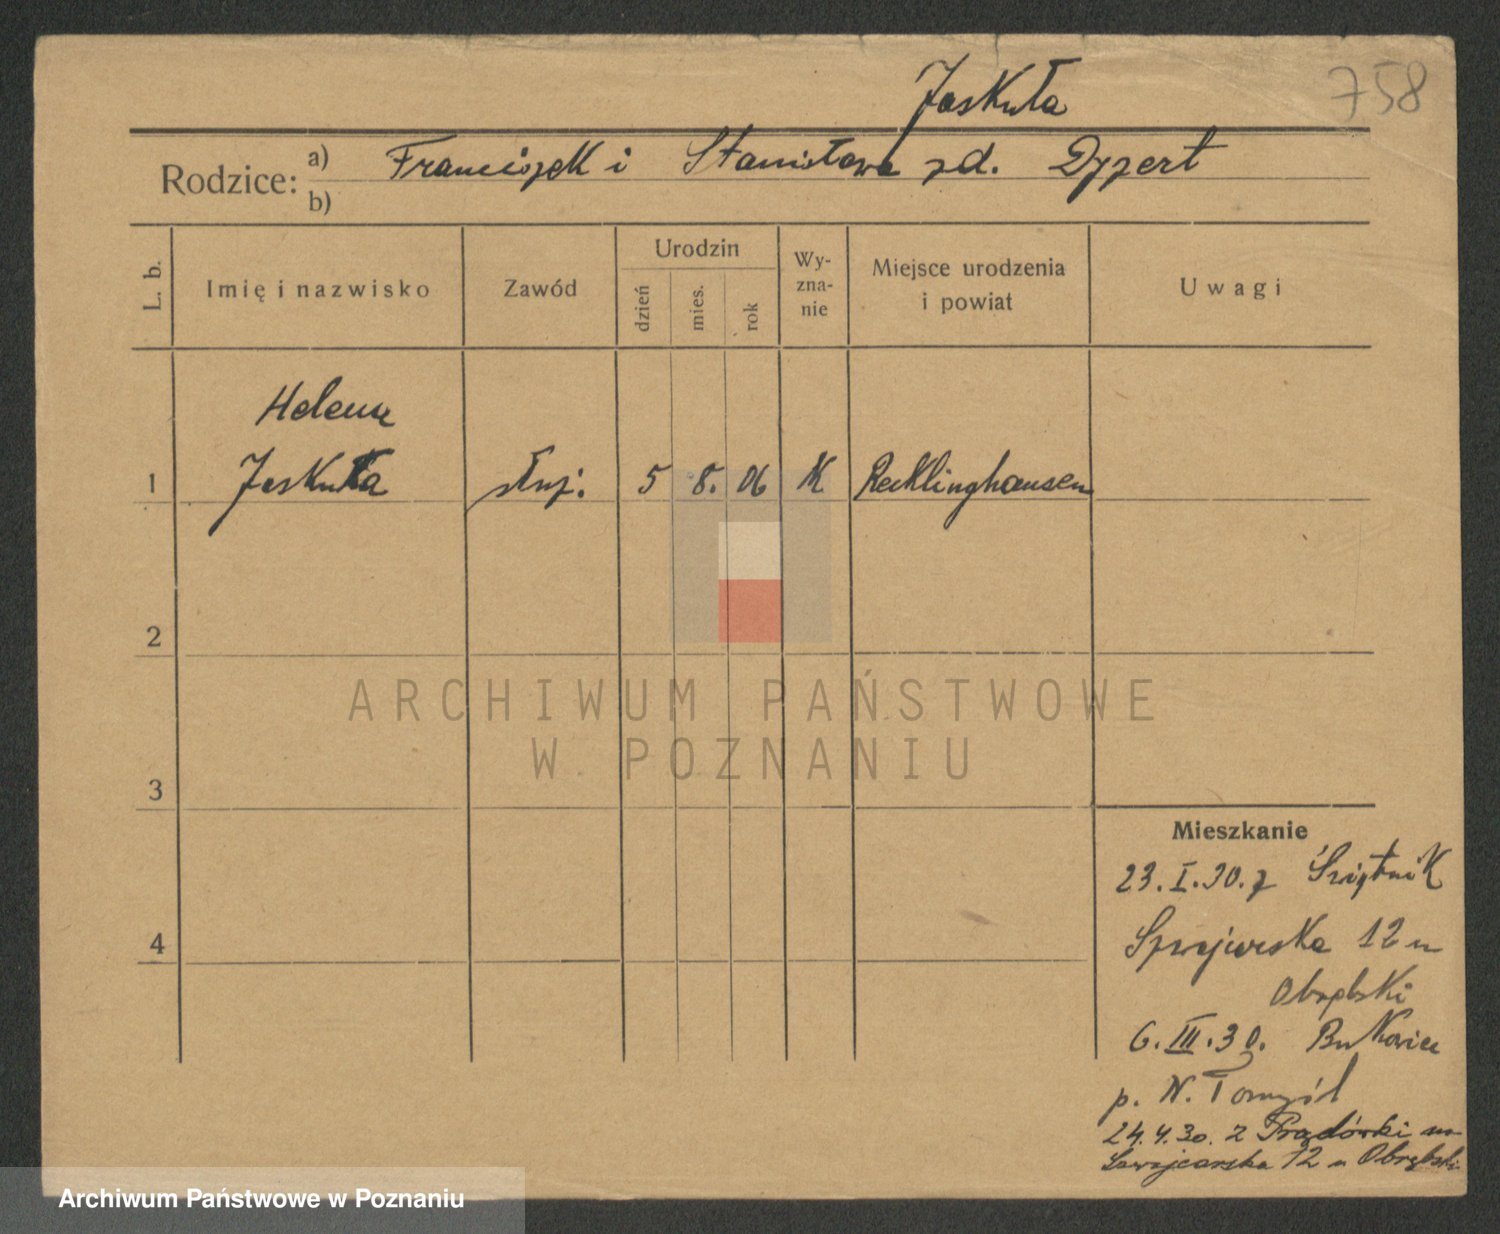 Jaskuła
758
Rodzice: a) Franciszek i Stanisława zd. Dyzert
b)
L. b.
Imię i nazwisko
Zawód
Urodzin
dzień
mies.
rok
Wy-
zna-
nie
Miejsce urodzenia
i powiat
Uwagi
Helena
1 Jaskuła służ. 5 8. 06 K Recklinghausen
2
3
4
ARCHIWUM PAŃSTWOWE
W POZNANIU
Mieszkanie
23.I.30. z Świętnik
Szwajcarska 12 u
Obrębski
6.III.30. Bukowiec
p. N. Tomyśl
24.4.30. z Prądówki na
Szwajcarska 12 u Obrębski
Archiwum Państwowe w Poznaniu